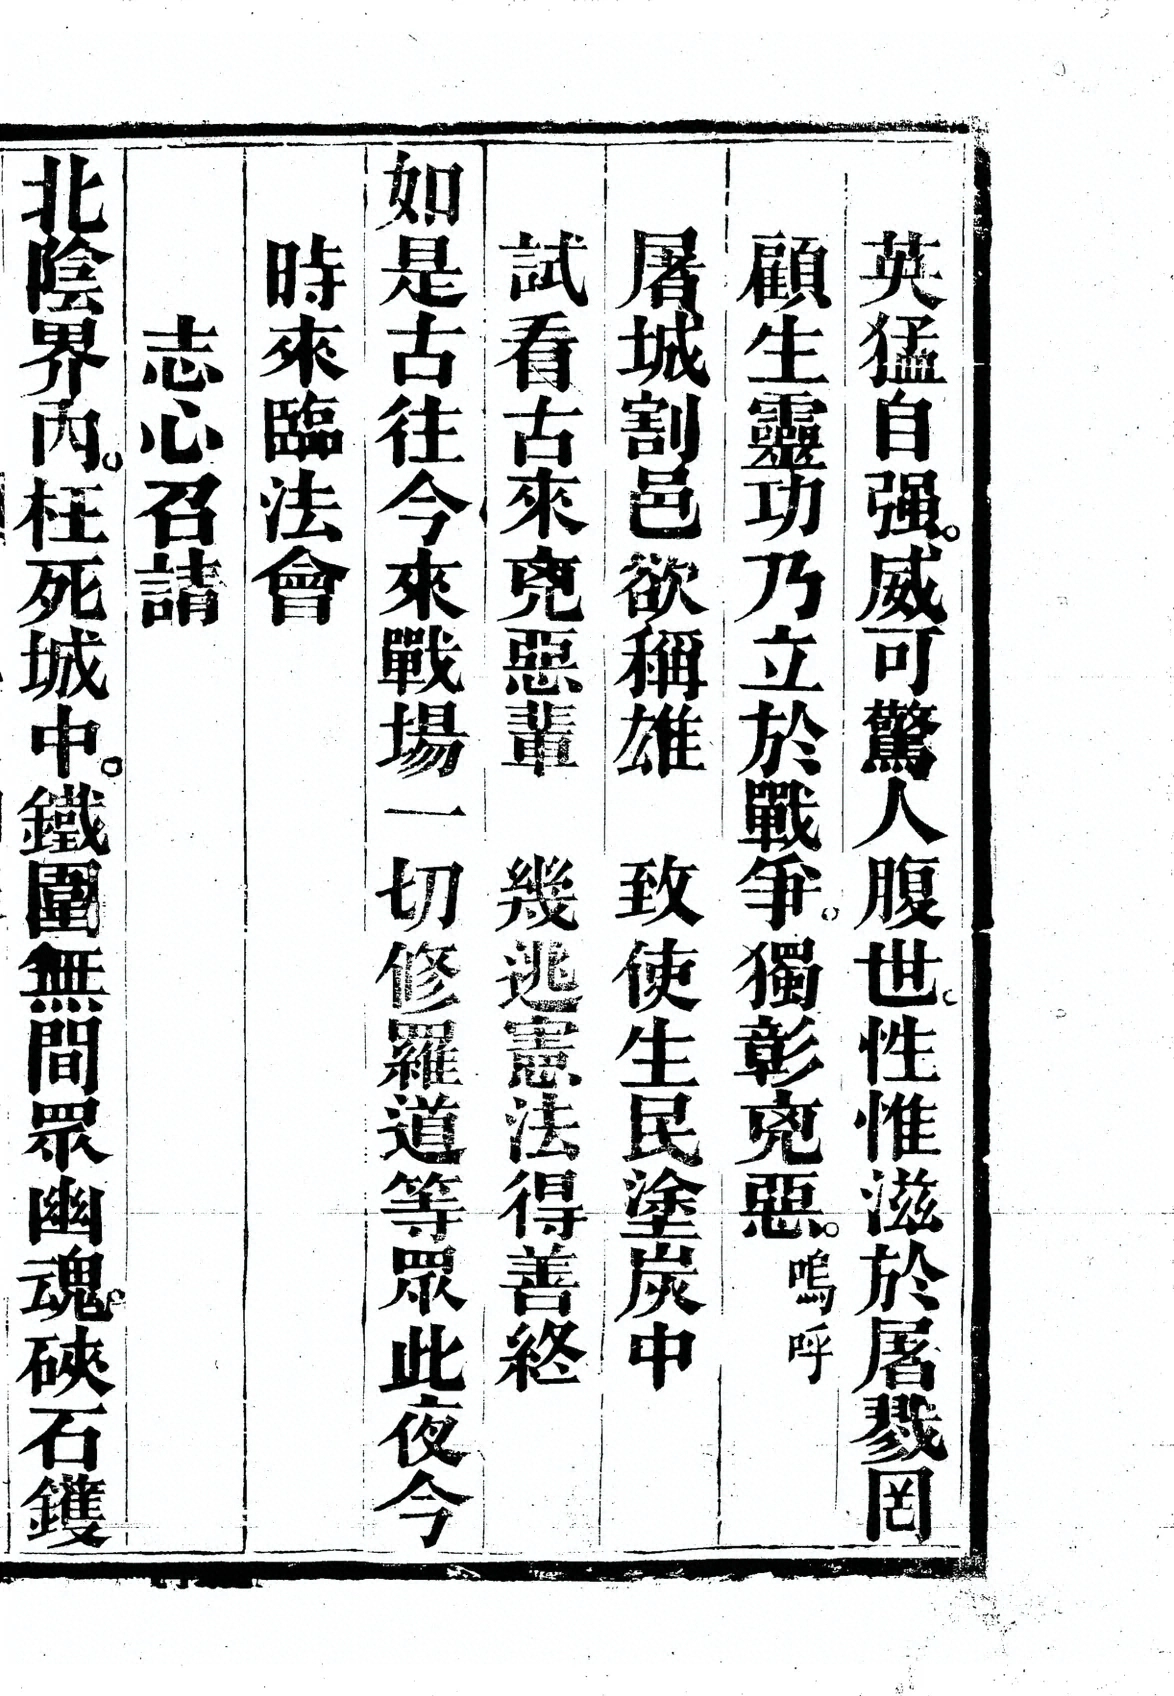 英猛自强。威可驚人腹世。性惟滋於屠戮罔
顧生靈功乃立於戰爭。獨彰兇惡。嗚呼
屠城割邑欲稱雄　致使生民塗炭中
試看古來兇惡輩　幾逃憲法得善終
如是古往今來戰場一切修羅道等眾此夜今
時來臨法會
志心召請
北陰界內。枉死城中。鐵圍無間眾幽魂。硤石鑊